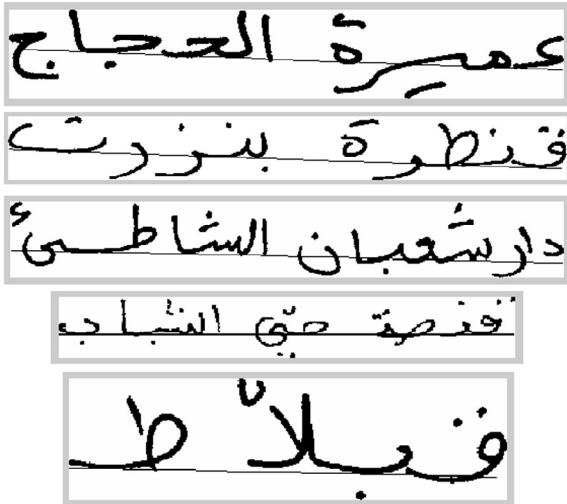 عميرة الحجاج
قنطرة بنزرت
دار شعبان الشاطئ
قفصة حي الشباب
قبلاّط